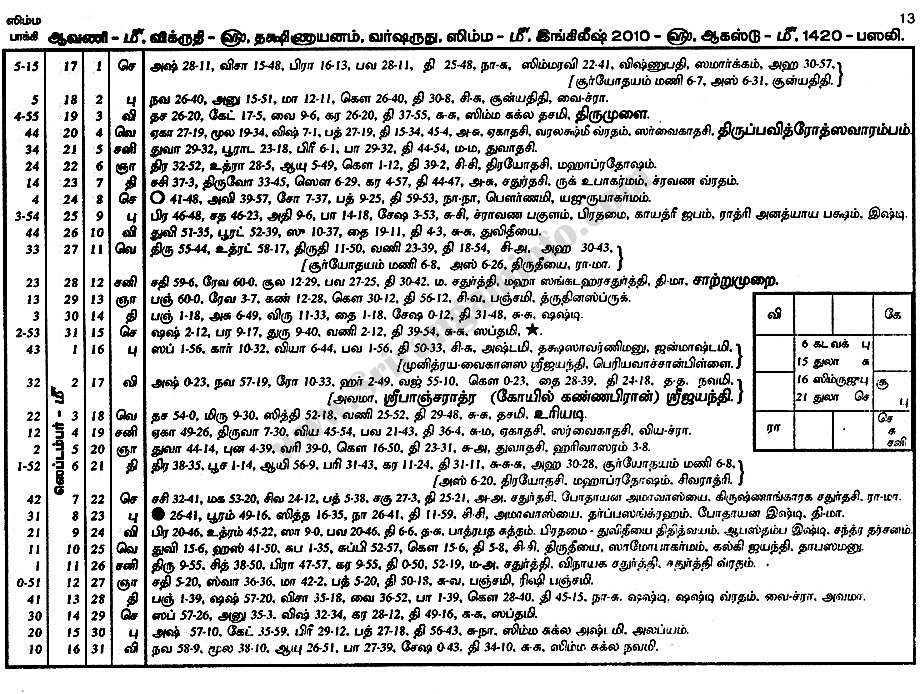 ஸிம்ம 13
பாக்கி ஆவணி - மீ, விக்ருதி - ௵, தக்ஷிணாயனம், வர்ஷருது, ஸிம்ம - மீ, இங்கிலீஷ் 2010 - ௵, ஆகஸ்டு - மீ, 1420 - பஸலி.
5-15 17 1 செ அஷ் 28-11, விசா 15-48, பிரா 16-13, பவ 28-11, தி 25-48, நா-சு, ஸிம்மரவி 22-41, விஷ்ணுபதி, ஸமார்க்கம், அஹ 30-57,
[சூர்யோதயம் மணி 6-7, அஸ் 6-31, சூன்யதிதி.
5 18 2 பு நவ 26-40, அனு 15-51, மா 12-11, கௌ 26-40, தி 30-8, சி-சு, சூன்யதிதி, வை-ச்ரா.
4-55 19 3 வி தச 26-20, கேட் 17-5, வை 9-6, கர 26-20, தி 37-55, சு-சு, ஸிம்ம சுக்ல தசமி, திருமுளை.
44 20 4 வெ ஏகா 27-19, மூல 19-34, விஷ் 7-1, பத் 27-19, தி 15-34, 45-4, அ-சு, ஏகாதசி, வரலக்ஷ்மீ வ்ரதம், ஸர்வைகாதசி, திருப்பவித்ரோத்ஸவாரம்பம்.
34 21 5 சனி துவா 29-32, பூராட 23-18, பிரீ 6-1, பா 29-32, தி 44-54, ம-ம, துவாதசி.
24 22 6 ஞா திர 32-52, உத்ரா 28-5, ஆயு 5-49, கௌ 1-12, தி 39-2, சி-சி, திரயோதசி, மஹாப்ரதோஷம்.
14 23 7 தி சசி 37-3, திருவோ 33-45, ஸௌ 6-29, கர 4-57, தி 44-47, அ-சு, சதுர்தசி, ருக் உபாகர்மம், ச்ரவண வ்ரதம்.
4 24 8 செ ○ 41-48, அவி 39-57, சோ 7-37, பத் 9-25, தி 59-53, நா-நா, பௌர்ணமி, யஜுருபாகர்மம்.
3-54 25 9 பு பிர 46-48, சத 46-23, அதி 9-6, பா 14-18, சேஷ 3-53, சு-சி, ச்ராவண பகுளம், பிரதமை, காயத்ரீ ஜபம், ராத்ரி அனத்யாய பக்ஷம், இஷ்டி.
44 26 10 வி துவி 51-35, பூரட் 52-39, ஸு 10-37, தை 19-11, தி 4-3, சு-சு, துவிதீயை.
33 27 11 வெ திரு 55-44, உத்ரட் 58-17, திருதி 11-50, வணி 23-39, தி 18-54, சி-அ, அஹ 30-43,
[சூர்யோதயம் மணி 6-8, அஸ் 6-26, திருதீயை, ரா-மா.
23 28 12 சனி சதி 59-6, ரேவ 60-0, சூல 12-29, பவ 27-25, தி 30-42, ம, சதுர்த்தி, மஹா ஸங்கடஹரசதுர்த்தி, தி-மா, சாற்றுமுறை.
13 29 13 ஞா பஞ் 60-0, ரேவ 3-7, கண் 12-28, கௌ 30-12, தி 56-12, சி-வ, பஞ்சமி, த்ருதினஸ்ப்ருக்.
3 30 14 தி பஞ் 1-18, அசு 6-49, விரு 11-33, தை 1-18, சேஷ 0-12, தி 31-48, சு-சு, ஷஷ்டி.
2-53 31 15 செ ஷஷ் 2-12, பர 9-17, துரு 9-40, வணி 2-12, தி 39-54, சு-சு, ஸப்தமி, ★.
43 1 16 பு ஸப் 1-56, கார் 10-32, வியா 6-44, பவ 1-56, தி 50-33, சி-சு, அஷ்டமி, தக்ஷஸாவர்ணிமனு, ஜன்மாஷ்டமி,
[முனித்ரய-வைகானஸ ஸ்ரீஜயந்தி, பெரியவாச்சான்பிள்ளை.
32 2 17 வி அஷ் 0-23, நவ 57-19, ரோ 10-33, ஹர் 2-49, வஜ் 55-10, கௌ 0-23, தை 28-39, தி 24-18, த-த, நவமி,
[அவமா, ஸ்ரீபாஞ்சராத்ர (கோயில் கண்ணபிரான்) ஸ்ரீஜயந்தி.
22 3 18 வெ தச 54-0, மிரு 9-30, ஸித்தி 52-18, வணி 25-52, தி 29-48, சு-சு, தசமி, உரியடி.
12 4 19 சனி ஏகா 49-26, திருவா 7-30, விய 45-54, பவ 21-43, தி 36-4, சு-ம, ஏகாதசி, ஸர்வைகாதசி, விய-ச்ரா.
2 5 20 ஞா துவா 44-14, புன 4-39, வரி 39-0, கௌ 16-50, தி 23-31, சு-அ, துவாதசி, ஹரிவாஸரம் 3-8.
1-52 6 21 தி திர 38-35, பூச 1-14, ஆயி 56-9, பரி 31-43, கர 11-24, தி 31-11, சு-சு-சு, அஹ 30-28, சூர்யோதயம் மணி 6-8,
[அஸ் 6-20, திரயோதசி, மஹாப்ரதோஷம், சிவராத்ரி.
42 7 22 செ சசி 32-41, மக 53-20, சிவ 24-12, பத் 5-38, சகு 27-3, தி 25-21, அ-அ, சதுர்தசி, போதாயன அமாவாஸ்யை, கிருஷ்ணாங்காரக சதுர்தசி, ரா-மா.
31 8 23 பு ● 26-41, பூரம் 49-16, ஸித்த 16-35, நா 26-41, தி 11-59, சி-சி, அமாவாஸ்யை, தர்ப்பஸங்க்ரஹம், போதாயன இஷ்டி, தி-மா.
21 9 24 வி பிர 20-46, உத்ரம் 45-22, ஸா 9-0, பவ 20-46, தி 6-6, த-சு, பாத்ரபத சுத்தம், பிரதமை - துவிதீயை திதித்வயம், ஆபஸ்தம்ப இஷ்டி, சந்த்ர தர்சனம்.
11 10 25 வெ துவி 15-6, ஹஸ் 41-50, சுப 1-35, சுப்பி 52-57, கௌ 15-6, தி 5-8, சி-சி, திருதீயை, ஸாமோபாகர்மம், கல்கி ஜயந்தி, தாபஸமனு.
1 11 26 சனி திரு 9-55, சித் 38-50, பிரா 47-57, கர 9-55, தி 0-50, 52-19, ம-அ, சதுர்த்தி, விநாயக சதுர்த்தி, சதுர்த்தி வ்ரதம்.
0-51 12 27 ஞா சதி 5-20, ஸ்வா 36-36, மா 42-2, பத் 5-20, தி 50-18, சு-வ, பஞ்சமி, ரிஷி பஞ்சமி.
41 13 28 தி பஞ் 1-39, ஷஷ் 57-20, விசா 35-18, வை 36-52, பா 1-39, கௌ 28-40, தி 45-15, நா-சு, ஷஷ்டி, ஷஷ்டி வ்ரதம், வை-ச்ரா, அவமா.
30 14 29 செ ஸப் 57-26, அனு 35-3, விஷ் 32-34, கர 28-12, தி 49-16, சு-சு, ஸப்தமி.
20 15 30 பு அஷ் 57-10, கேட் 35-59, பிரீ 29-12, பத் 27-18, தி 56-43, சு-நா, ஸிம்ம சுக்ல அஷ்டமி, அலப்யம்.
10 16 31 வி நவ 58-9, மூல 38-10, ஆயு 26-51, பா 27-39, சேஷ 0-43, தி 34-10, சு-சு, ஸிம்ம சுக்ல நவமி.
ஸெப்டம்பர் - மீ
வி கே
6 கடவக் பு
15 துலா சு
16 ஸிம்ருஜு பு சூ
21 துலா செ பு
ரா செ
சு
சனி